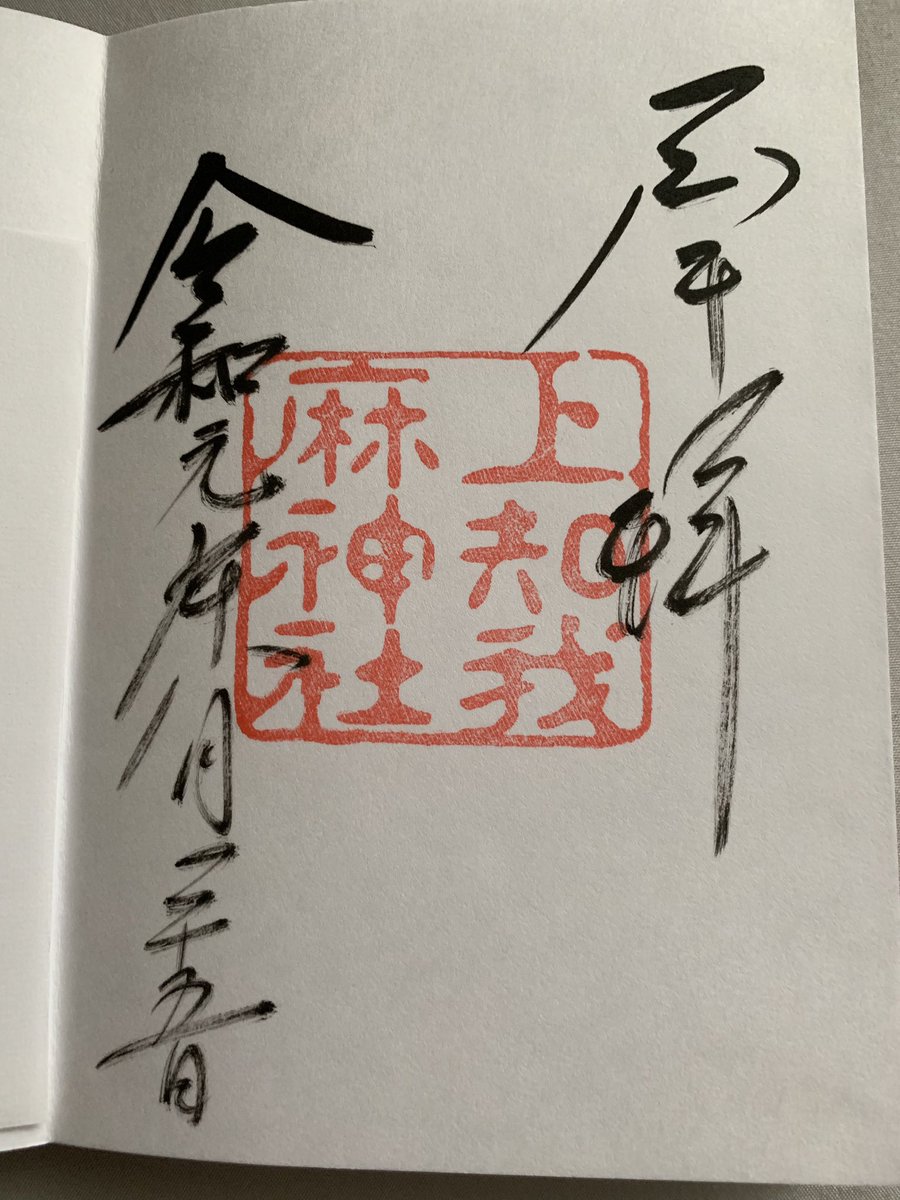 奉拝
上知我
麻神社
令和元年八月二十五日